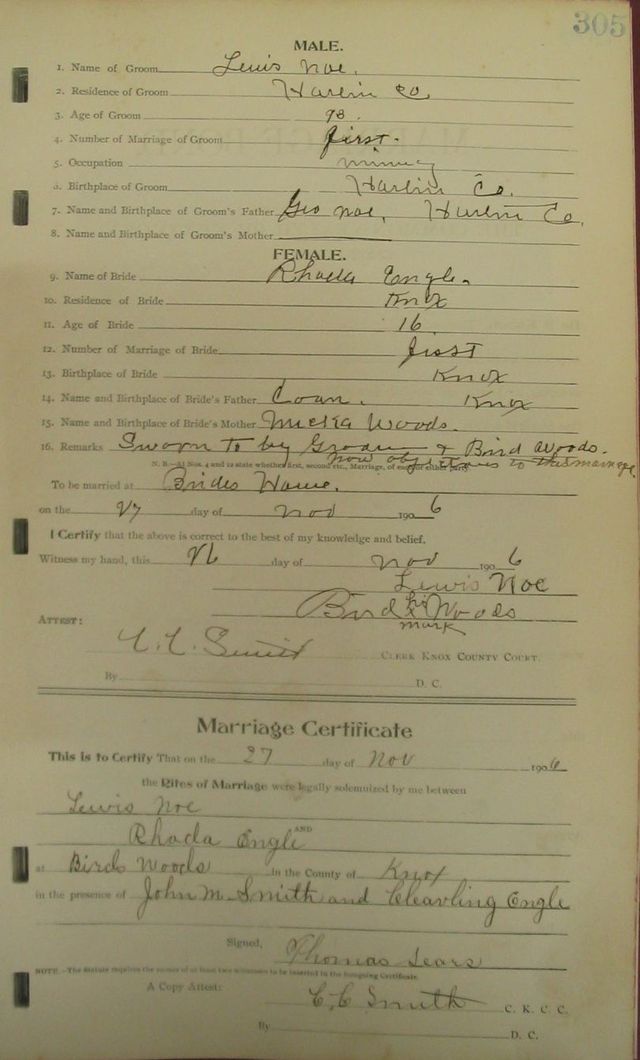 305
MALE.
1. Name of Groom Lewis Noe.
2. Residence of Groom Harlin Co
3. Age of Groom
4. Number of Marriage of Groom first.
5. Occupation
6. Birthplace of Groom Harlin Co.
7. Name and Birthplace of Groom's Father Geo Noe, Harlin Co.
8. Name and Birthplace of Groom's Mother
FEMALE.
9. Name of Bride Rhoda Engle.
10. Residence of Bride Knox
11. Age of Bride 16
12. Number of Marriage of Bride first
13. Birthplace of Bride Knox
14. Name and Birthplace of Bride's Father Knox
15. Name and Birthplace of Bride's Mother Woods.
16. Remarks Sworn to by Groom & Bird Woods.
to this marriage
N. B.—At Nos. 4 and 12 state whether first, second etc., Marriage, of each or either party.
To be married at Brides Home.
on the 27 day of Nov 1906
I Certify that the above is correct to the best of my knowledge and belief.
Witness my hand, this 26 day of Nov 1906
Lewis Noe
Bird his x Woods
mark
ATTEST:
C. C. Smith CLERK KNOX COUNTY COURT.
By D. C.
Marriage Certificate
This is to Certify That on the 27 day of Nov 1906
the Rites of Marriage were legally solemnized by me between
Lewis Noe
AND
Rhoda Engle
at Birds Woods In the County of Knox
in the presence of John M. Smith and Engle
Signed, Thomas Sears
NOTE.—The Statute requires the names of at least two witnesses to be inserted in the foregoing Certificate.
A Copy Attest: C. C. Smith C. K. C. C.
By D. C.